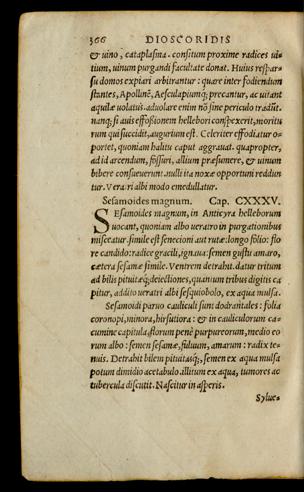 366 DIOSCORIDIS
& uino, cataplasma. consitum proxime radices ui⸗
tium, uinum purgandi facultate donat. Huius respar⸗
su domos expiari arbitrantur: quare inter fodiendum
stantes, Apollinẽ, Aesculapiumq́; precantur, ac uitant
aquilæ uolatus. aduolare enim nõ sine periculo tradũt.
nanq; si auis effoßionem hellebori conspexerit, moritu
rum qui succidit, augurium est. Celeriter effodiatur o⸗
portet, quoniam halitu caput aggrauat. quapropter,
ad id arcendum, fossuri, allium præsumere, & uinum
bibere consueuerunt. nulli ita noxæ opportuni reddun
tur. Veratri albi modo emedullatur.
Sesamoides magnum. Cap. CXXXV.
SEsamoides magnum, in Anticyra helleborum
uocant, quoniam albo ueratro in purgationibus
misceatur. simile est senecioni aut rutæ: longo folio: flo
re candido: radice gracili, ignaua: semen gustu amaro,
cætera sesamæ simile. Ventrem detrahit. datur tritum
ad bilis pituitæq́; deiectiones, quantum tribus digitis ca
pitur, addito ueratri albi sesquiobolo, ex aqua mulsa.
Sesamoidi paruo cauliculi sunt dodrantales: folia
coronopi, minora, hirsutiora: & in cauliculorum ca⸗
cumine capitula, florum penè purpureorum, medio eo
rum albo: semen sesamæ, fuluum, amarum: radix te⸗
nuis. Detrahit bilem pituitasq́;, semen ex aqua mulsa
potum dimidio acetabulo. illitum ex aqua, tumores ac
tubercula discutit. Nascitur in asperis.
Sylue⸗